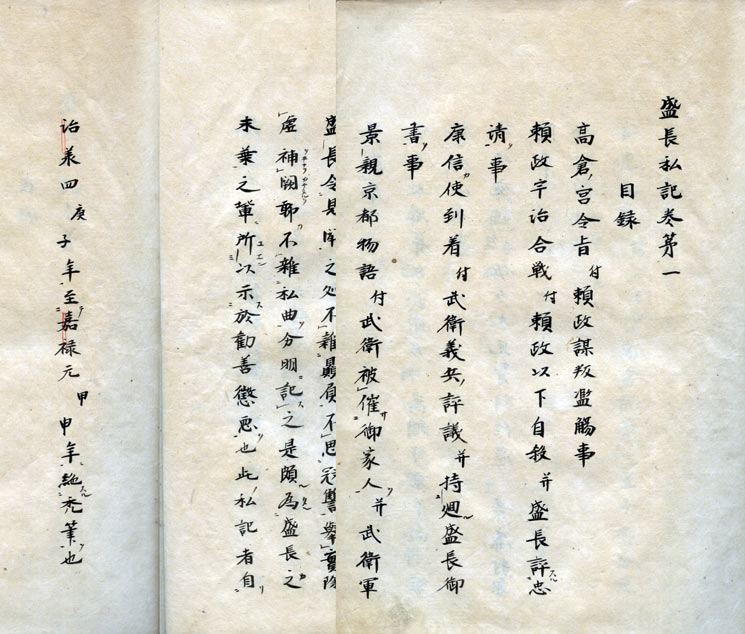 盛長私記巻第一
目録
高倉宮令旨付頼政謀叛濫觴事
頼政宇治合戦付頼政以下自殺并盛長評忠
請事
康信使到着付武衛義兵評議并持廻盛長御
書事
景親京都物語付武衛被催御家人并武衛軍
盛長令見聞之処不雜贔負不思冦讐挙實除
虚補闕聊不雜私曲分明記之是頗為盛長之
末葉之輩所以示於勧善懲悪也此私記者自
治承四庚子年至嘉禄元甲申年絶禿筆也